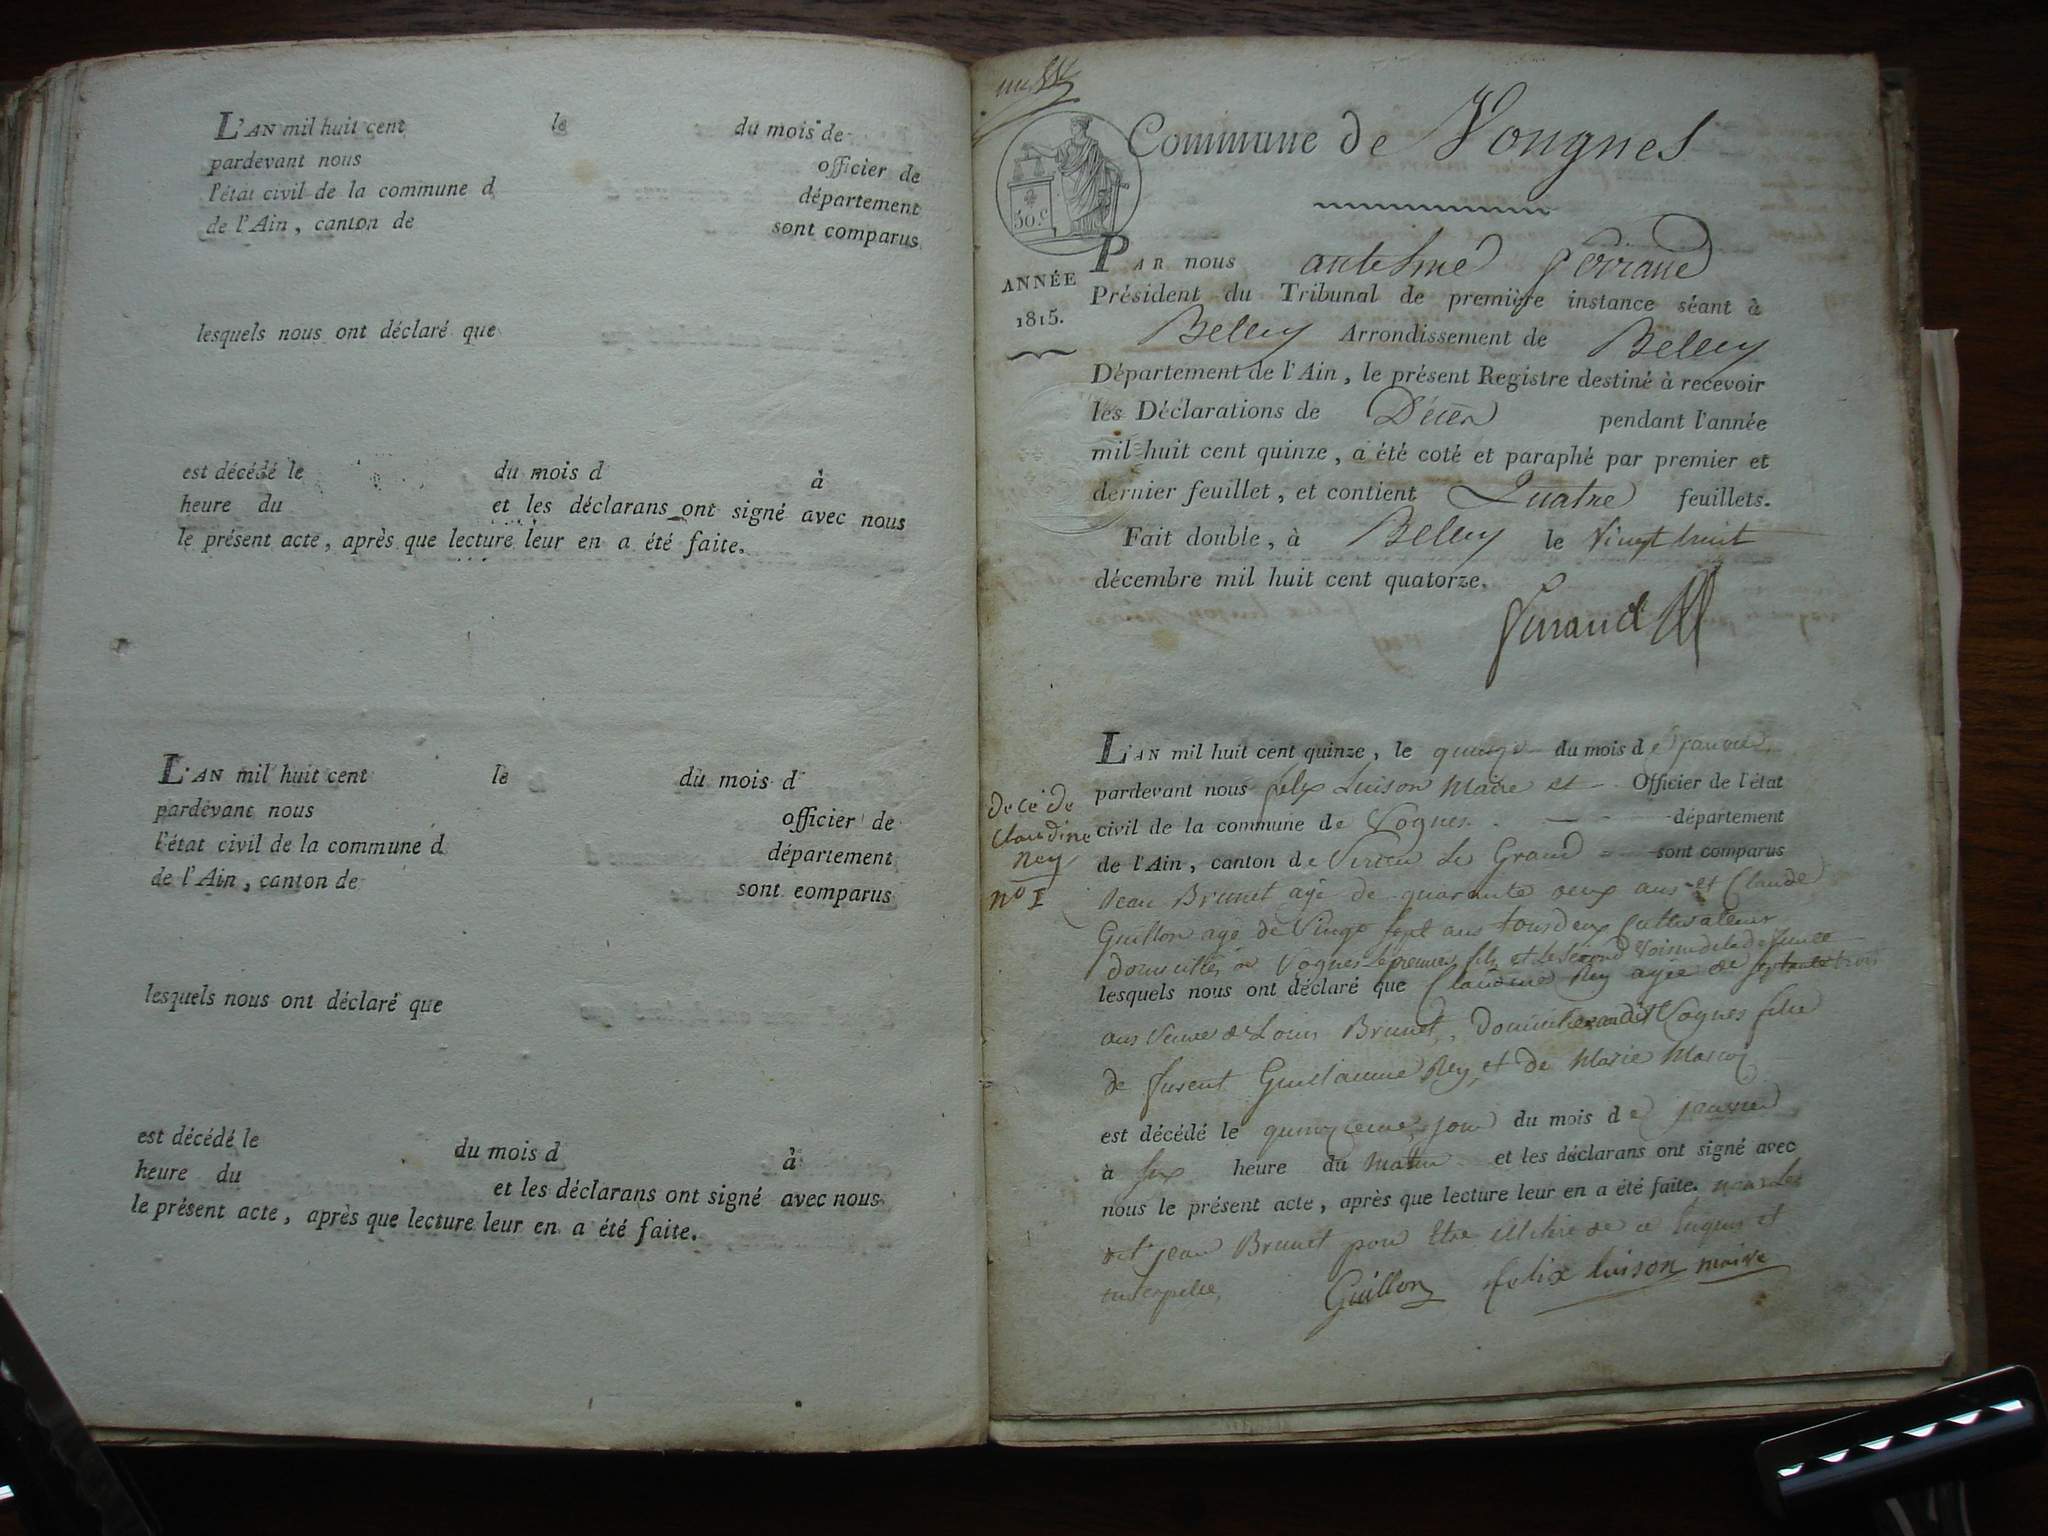 L'AN mil huit cent le du mois de
pardevant nous officier de
l'état civil de la commune d département
de l'Ain, canton de sont comparus
lesquels nous ont déclaré que
est décédé le du mois d à
heure du et les déclarans ont signé avec nous
le présent acte, après que lecture leur en a été faite.
L'AN mil huit cent le du mois d
pardevant nous officier de
l'état civil de la commune d département
de l'Ain, canton de sont comparus
lesquels nous ont déclaré que
est décédé le du mois d à
heure du et les déclarans ont signé avec nous
le présent acte, après que lecture leur en a été faite.
Commune de Vongnes
50.c
ANNÉE
1815.
PAR nous antelme ferraud
Président du Tribunal de première instance séant à
Belley Arrondissement de Belley
Département de l'Ain, le présent Registre destiné à recevoir
les Déclarations de Décès pendant l'année
mil huit cent quinze, a été coté et paraphé par premier et
dernier feuillet, et contient Quatre feuillets.
Fait double, à Belley le Vingt huit
décembre mil huit cent quatorze.
ferraud
Decé de
Claudine
Rey
No 1
L'AN mil huit cent quinze, le quinze du mois de janvier
pardevant nous felix Luison Maire et Officier de l'état
civil de la commune de Vognes département
de l'Ain, canton de Virieu Le Grand sont comparus
Jean Brunet agé de quarante deux ans et Claude
Guillon agé de Vingt sept ans tous deux Cultivateur
domiciliés à Vognes le premier fils et le second Voisin de la defunte
lesquels nous ont déclaré que Claudine Rey agée de septante trois
ans Veuve de Louis Brunet, domiciliée audit Vognes fille
de furent Guillaume Rey, et de Marie
est décédé le quinzieme jour du mois de janvier
à six heure du Matin et les déclarans ont signé avec
nous le présent acte, après que lecture leur en a été faite. non Le
dit jean Brunet pour Etre illitéré de ce Enquis et
Guillon felix luison maire